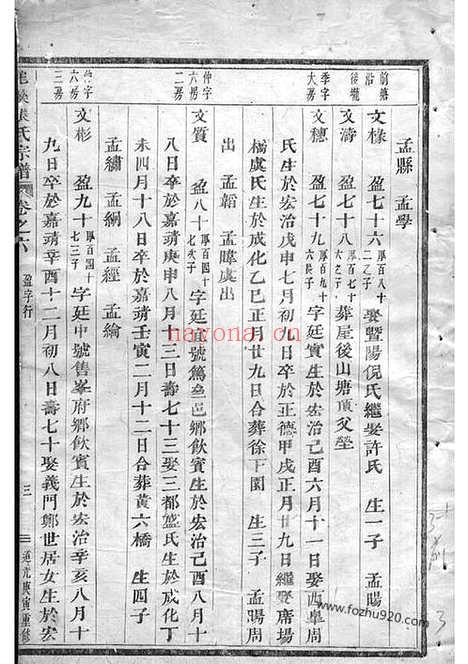 孟縣 孟學
前塘沿 文樣 盈七十六 厚百八十二之子 娶暨陽倪氏繼娶許氏 生一子 孟暘
後壠 文濤 盈七十八 厚百七十六之子 葬屋後山塘頂父塋
季字大房 文穗 盈七十九 厚百九十六長子 字廷實生於宏治己酉六月十一日娶西阜周
氏生於宏治戊申七月初九日卒於正德甲戌正月廿九日繼娶席場
橋虞氏生成化乙巳正月廿九日合葬徐下園 生三子 孟暘周
出 孟韜 孟暐虞出
仲字六房二房 文質 盈八十 厚百四十七次子 字廷宜號篤叁邑鄉飲賓生於宏治己酉八月十
八日卒於嘉靖庚申八月十三日壽七十三娶三都盛氏生於成化丁
未四月十八日卒於嘉靖壬寅二月十二日合葬黄六橋 生四子
孟繡 孟絅 孟經 孟綸
仲字六房三房 文彬 盈九十 厚百四十七三子 字廷中號售峯府鄉飲賓生於宏治辛亥八月十
九日卒於嘉靖辛酉十二月初八日壽七十娶義門鄭世居女生於宏
氏宗譜 卷之六 盈字行 三 道光庚寅重修
navona.cn
www.fozhu920.com
3